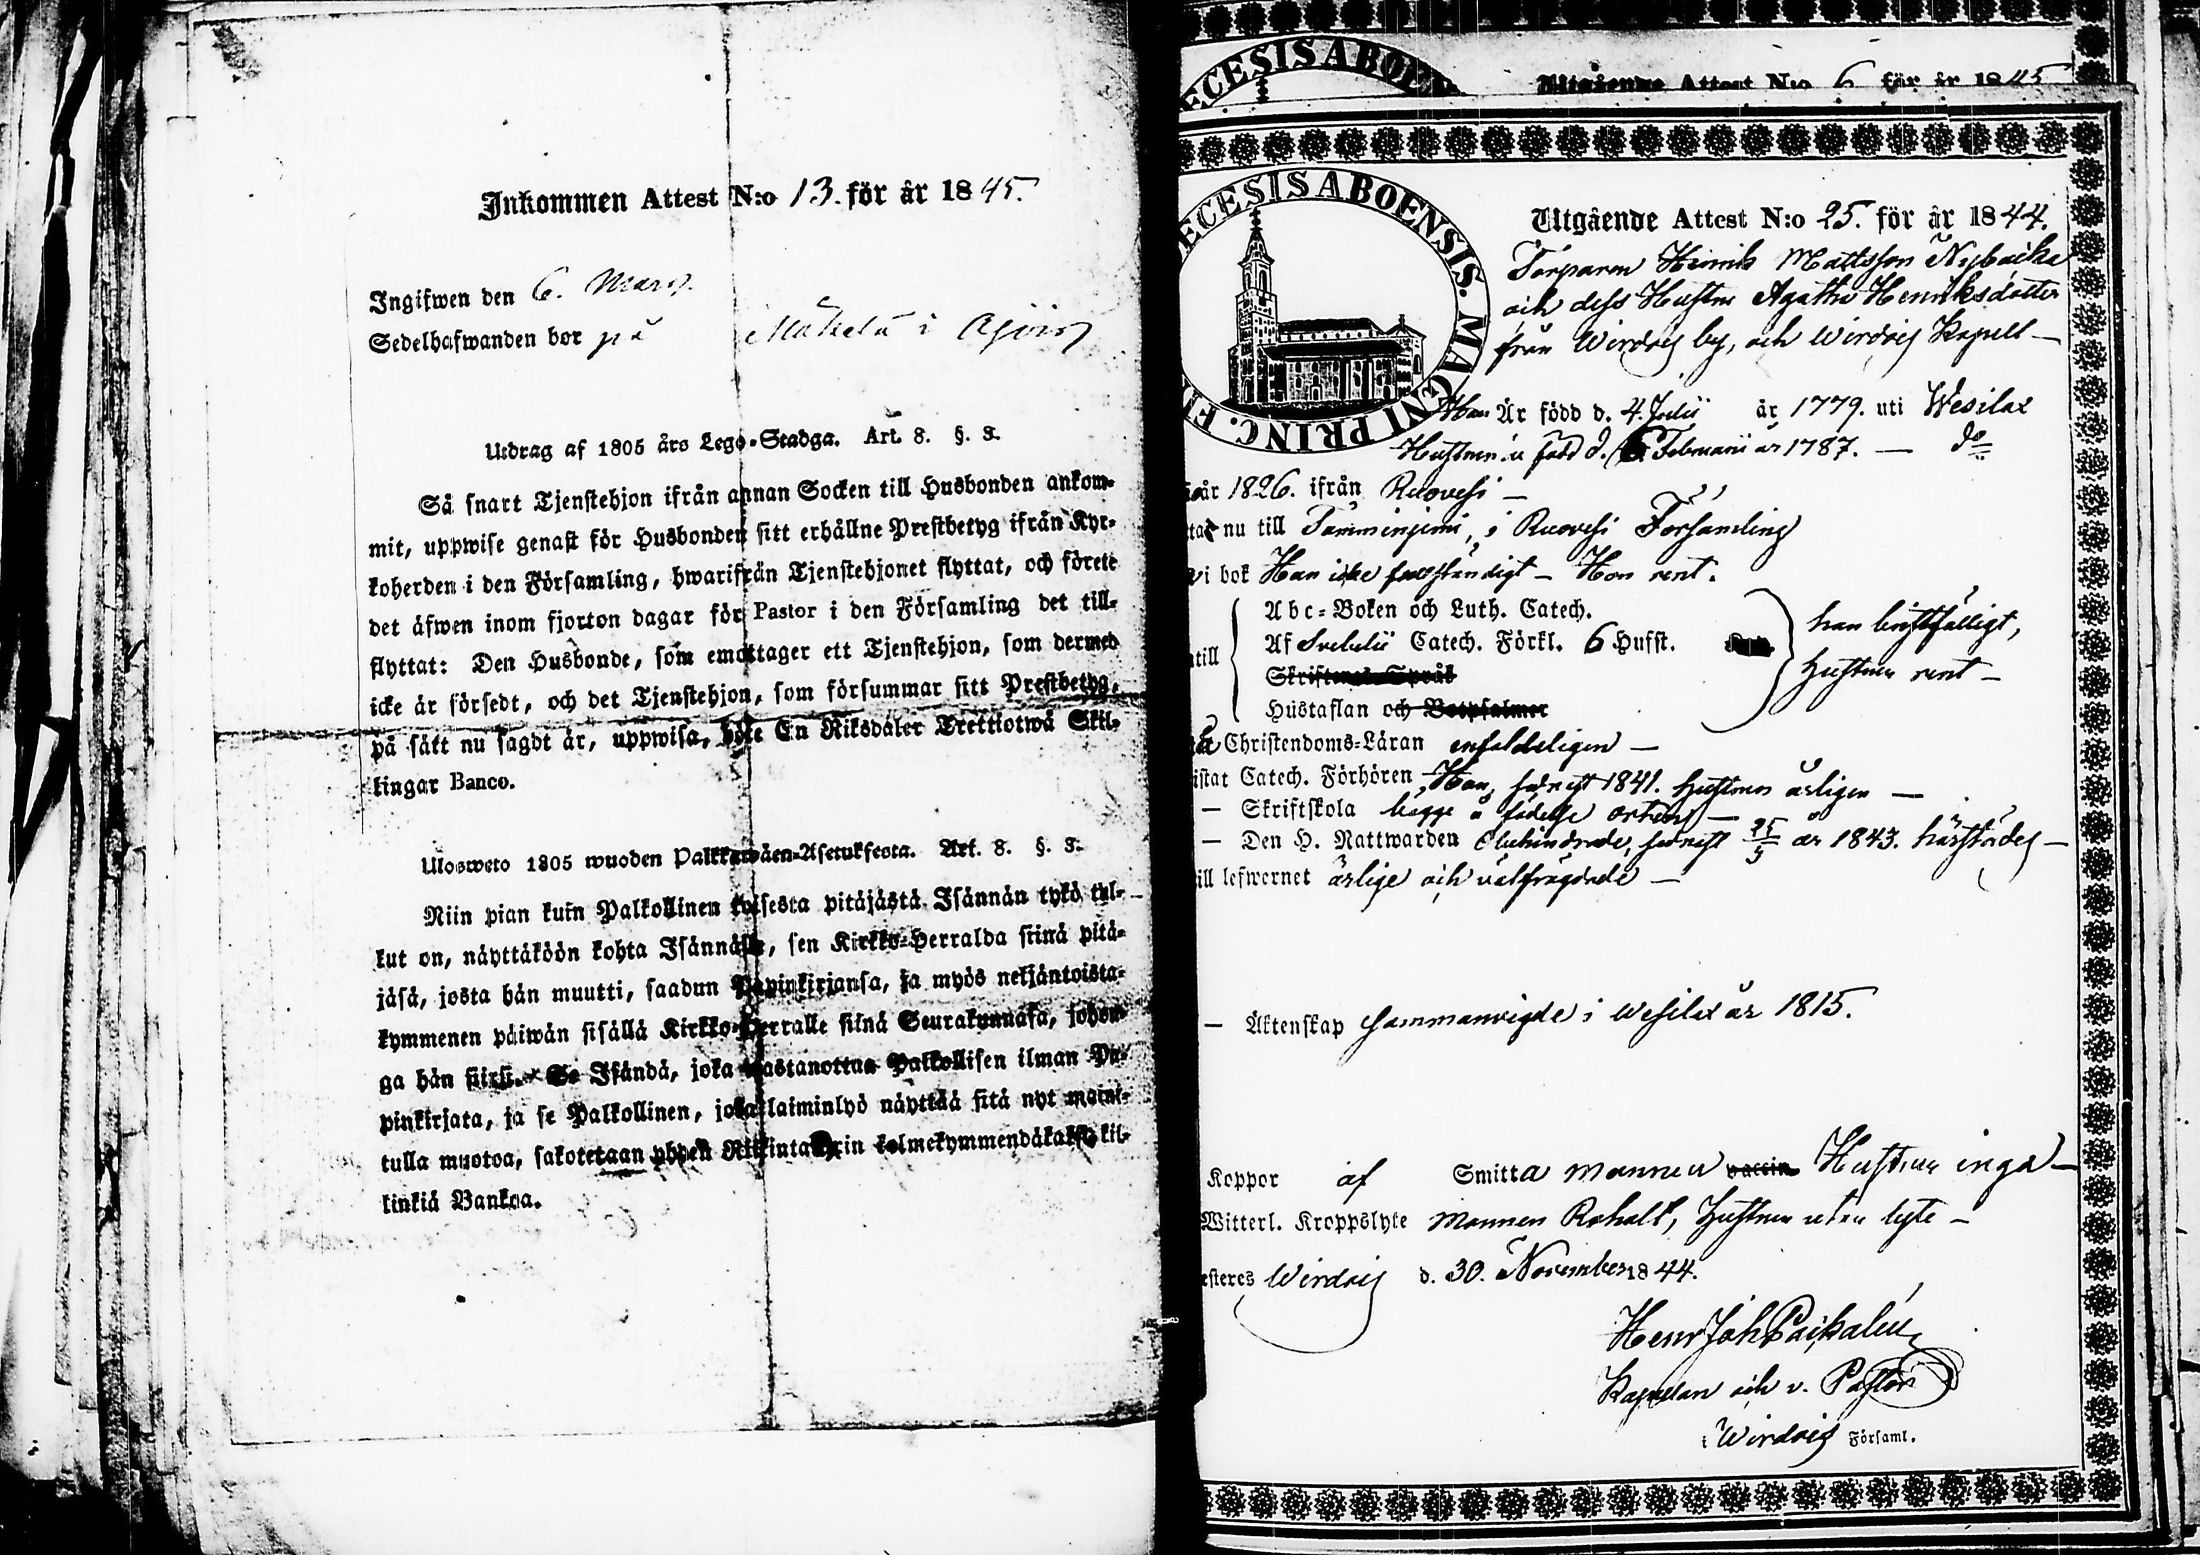 Inkommen Attest N:o 13. för år 1845.
Ingifwen den 6. Mars.
Sedelhafwanden bor på Mäkelä i
Utdrag af 1805 års Lego-Stadga. Art. 8. §. 3.
Så snart Tjenstehjon ifrån annan Socken till Husbonden ankom-
mit, uppwise genast för Husbonden sitt erhållne Prestbetyg ifrån Kyr-
koherden i den Församling, hwarifrån Tjenstehjonet flyttat, och förete
det äfwen inom fjorton dagar för Pastor i den Församling det till-
flyttat: Den Husbonde, som emottager ett Tjenstehjon, som dermed
icke är försedt, och det Tjenstehjon, som försummar sitt Prestbetyg,
på sätt nu sagdt är, uppwisa, böte En Riksdaler Trettiotwå Skil-
lingar Banco.
Ulosweto 1805 wuoden Palkkawäen-Asetuksesta. Art. 8. §. 3.
Niin pian kuin Palkollinen toisesta pitäjästä Isännän tykö tul-
kut on, näyttäköön kohta Isännälle, sen Kirkko-Herralda siinä pitä-
jäsä, josta hän muutti, saadun Papinkirjansa, ja myös neljäntoista-
kymmenen päiwän sisällä Kirkko-Herralle siinä Seurakunnasa, johon-
ga hän siirsi. Se Isändä, joka wastanottaa Palkollisen ilman Pa-
pinkirjata, ja se Palkollinen, joka laiminlyö näyttää sitä nyt maini-
tulla muotoa, sakotetaan yhden Riikintalarin kolmekymmendäkaksi kil-
linkiä Bankoa.
ECESIS ABOEN
Utgående Attest N:o 6 för år 1845
ECESIS ABOENSIS. MAGNI PRINC. FI
Utgående Attest N:o 25. för år 1844.
Torparen Henrik Mattsson Nybacka
och dess Hustru Agatha Henriksdotter
från Wirdois by, och Wirdois Kapell —
Han Är född d. 4. Julii år 1779. uti Wesilax
Hustrun är född d. 6. Februarii år 1787. — do
år 1826. ifrån Ruovesi —
tat nu till Tammingimi, i Ruovesi Församling
i bok Han icke Hon rent.
Abc-Boken och Luth. Catech.
Af Svebelii Catech. Förkl. 6 Hufst.
till
Skriftenes Språk
Hustaflan och Botpsalmer
han bristfälligt,
Hustrun rent —
Christendoms-Läran enfaldeligen —
istat Catech. Förhören Han, senast 1841. Hustrun årligen —
— Skriftskola begge å födelse orten —
— Den H. Nattwarden Obehindrade, senast 25/5 år 1843. härstädes —
ill lefwernet ärlige och välfrägdade —
— Äktenskap Sammanvigde i Wesilax år 1815.
Koppor af Smitta Mannen vaccin Hustrun inga —
Witterl. Kroppslyte Mannen Hustrun utan lyte —
esteres Wirdois d. 30. November 1844.
Henr Joh
Kapellan och v. Pastor
i Wirdois Församl.